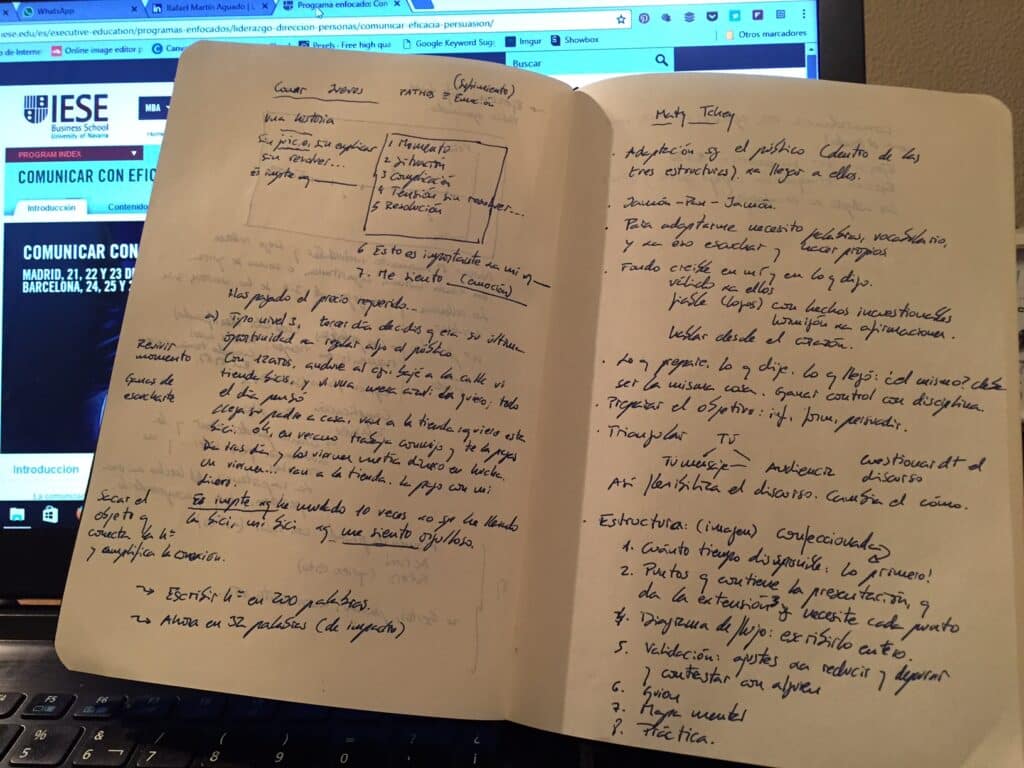 WhatsApp
Rafael Martín Aguado | L
Programa enfocado: Con
iese.edu/es/executive-education/programas-enfocados/liderazgo-direccion-personas/comunicar-eficacia-persuasion/
Online image editor
Pexels - Free high qua
Google Keyword Sug
Imgur
Showbox
Otros marcadores
Buscar
IESE
Business School
University of Navarra
MBA
PROGRAM INDEX
COMUNICAR CON EFIC
Introducción
Contenido
COMUNICAR CON
MADRID, 21, 22 Y 23 DE
BARCELONA, 24, 25 Y 2
Introducción
PATHOS = Emoción
(Sentimiento)
Una historia
Sin juicio, sin explicar
sin resolver...
Es impte xq
1 Momento
2 Situación
3 Complicación
4 Tensión sin resolver...
5 Resolución
6 Esto es importante xa mi xq
7. Me siento (emoción)
Has pagado el precio requerido...
a) Tipo nivel 3, tercer día de dos y era su última
oportunidad xa regalar algo al público.
Revivir
momento
Con 12 años, bajé a la calle vi
tienda bicis, y vi una la quiero; todo
Ganas de
escucharte
el día pensó
llega su padre a casa, van a la tienda quiero esta
bici. Ok, en verano trabaja conmigo y te la pagas
Día tras día y los viernes metía dinero en hucha.
Un viernes... van a la tienda. La pago con mi
dinero.
Sacar el
objeto q
conecta la hª
y amplifica la conexión.
Es impte xq he mudado 10 veces no se he llevado
la bici, mi bici xq me siento orgulloso.
Escribir hª en 200 palabras.
Ahora en 32 palabras (de impacto)
Maty Tchey
. Adaptación sg el público (dentro de las
tres estructuras). xa llegar a ellos.
. Jamón - Pan - Jamón.
. Para adaptarme necesito palabras, vocabulario,
y xa eso escuchar y hacer propias
. Fondo creíble en mí y en lo q digo.
válido xa ellos
fiable (logos) con hechos incuestionables
hormigón xa afirmaciones.
hablar desde el corazón.
. Lo q preparé. Lo q dije. Lo q llegó: ¿el mismo? debe
ser la misma cosa. Ganar control con disciplina.
. Preparar el objetivo: inf, form, persuadir.
. Triangular
Tú
Tu mensaje
Audiencia
Cuestionar dt el
discurso
Así flexibiliza el discurso. Cambia el cómo.
. Estructura: (imagen) confeccionada
1. Cuánto tiempo disponible: lo primero!
2. Puntos q contiene la presentación, q
da la extensión 3 q necesite cada punto
4. Diagrama de flujo: escribirlo entero.
5. Validación: ajustes xa reducir y depurar
y contrastar con alguien
6. Guion
7. Mapa mental
8. Práctica.